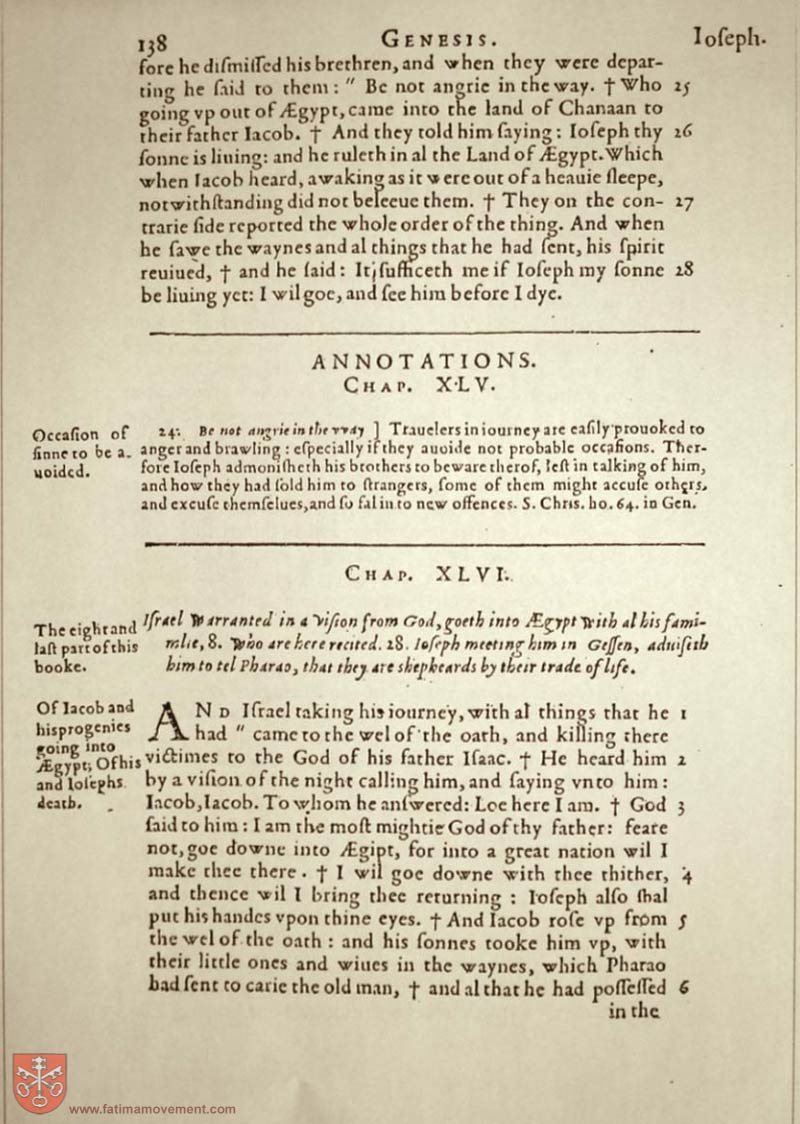 138 GENESIS. Ioſeph.
fore he diſmiſſed his brethren, and when they were depar-
ting he ſaid to them: " Be not angrie in the way. † Who 25
going vp out of Ægypt, came into the land of Chanaan to
their father Iacob. † And they told him ſaying: Ioſeph thy 26
ſonne is liuing: and he ruleth in al the Land of Ægypt. Which
when Iacob heard, awaking as it were out of a heauie ſleepe,
notwithſtanding did not beleeue them. † They on the con- 27
trarie ſide reported the whole order of the thing. And when
he ſawe the waynes and al things that he had ſent, his ſpirit
reuiued, † and he ſaid: It ſufficeth me if Ioſeph my ſonne 28
be liuing yet: I wil goe, and ſee him before I dye.
ANNOTATIONS.
CHAP. XLV.
Occaſion of
ſinne to be a-
uoided.
24. Be not angrie in the vvay ] Trauelers in iourney are eaſily prouoked to
anger and brawling: eſpecially if they auoide not probable occaſions. Ther-
fore Ioſeph admoniſheth his brothers to beware therof, leſt in talking of him,
and how they had ſold him to ſtrangers, ſome of them might accuſe others,
and excuſe themſelues, and ſo fal into new offences. S. Chriſ. ho. 64. in Gen.
CHAP. XLVI.
The eight and
laſt part of this
booke.
Iſrael warranted in a viſion from God, goeth into Ægypt with al his fami-
milie, 8. Who are here recited. 28. Ioſeph meeting him in Geſſen, aduiſeth
him to tel Pharao, that they are shepheards by their trade of life.
Of Iacob and
his progenies
going into
Ægypt; Of his
and Ioſephs
death.
AND Iſrael taking his iourney, with al things that he 1
had " came to the wel of the oath, and killing there
victimes to the God of his father Iſaac. † He heard him 2
by a viſion of the night calling him, and ſaying vnto him:
Iacob, Iacob. To whom he anſwered: Loe here I am. † God 3
ſaid to him: I am the moſt mightie God of thy father: feare
not, goe downe into Ægipt, for into a great nation wil I
make thee there. † I wil goe downe with thee thither, 4
and thence wil I bring thee returning: Ioſeph alſo ſhal
put his handes vpon thine eyes. † And Iacob roſe vp from 5
the wel of the oath: and his ſonnes tooke him vp, with
their little ones and wiues in the waynes, which Pharao
had ſent to carie the old man, † and al that he had poſſeſſed 6
in the
www.fatimamovement.com